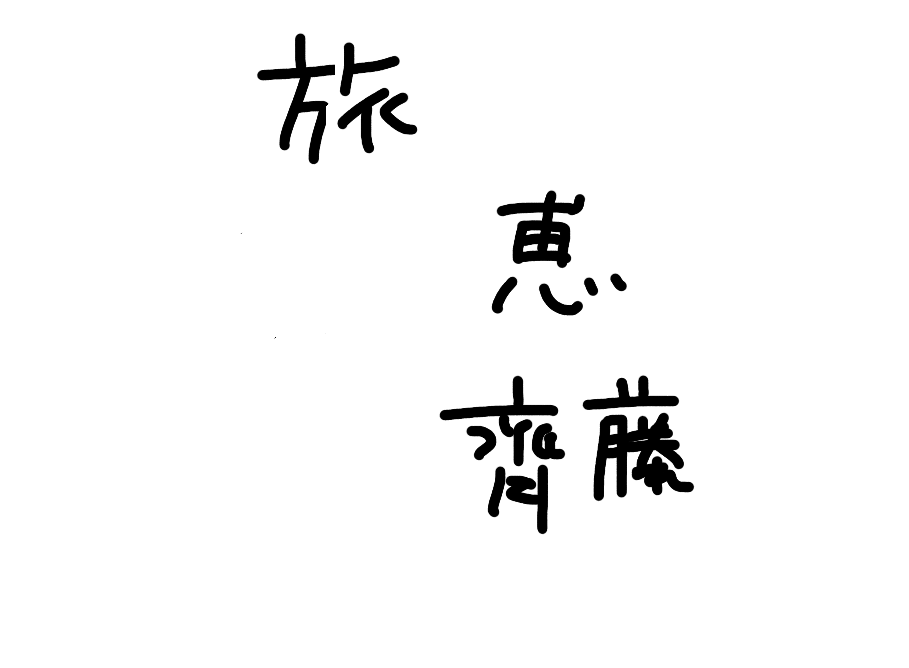 旅
恵
齊藤